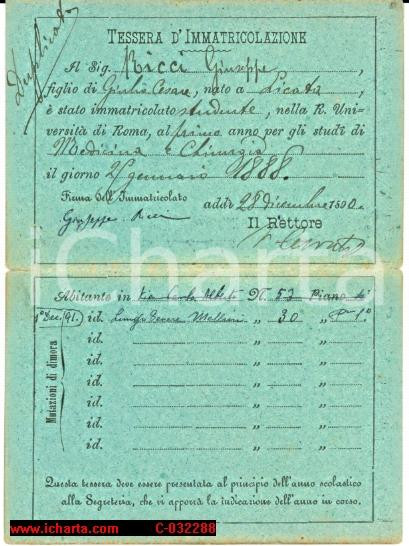 Duplicato
TESSERA D'IMMATRICOLAZIONE
Al Sig. Ricci Giuseppe,
figlio di Giulio Cesare, nato a Licata,
è stato immatricolato studente, nella R. Uni-
versità di Roma, al primo anno per gli studi di
Medicina e Chirurgia
il giorno gennaio 1888.
Firma dell'Immatricolato
addì 28 Dicembre 1890
Giuseppe Ricci
Il Rettore
iCharta
Abitante in Via Carlo Alberto N. 53 Piano
Mutazioni di dimora
91. id. Lungo Tevere Mellini „ 30 „ P° 1°
id. „ „
id. „ „
id. „ „
id. „ „
id. „ „
id. „ „
Questa tessera deve essere presentata al principio dell'anno scolastico
alla Segreteria, che vi apporrà la indicazione dell'anno in corso.
www.icharta.com C-032288